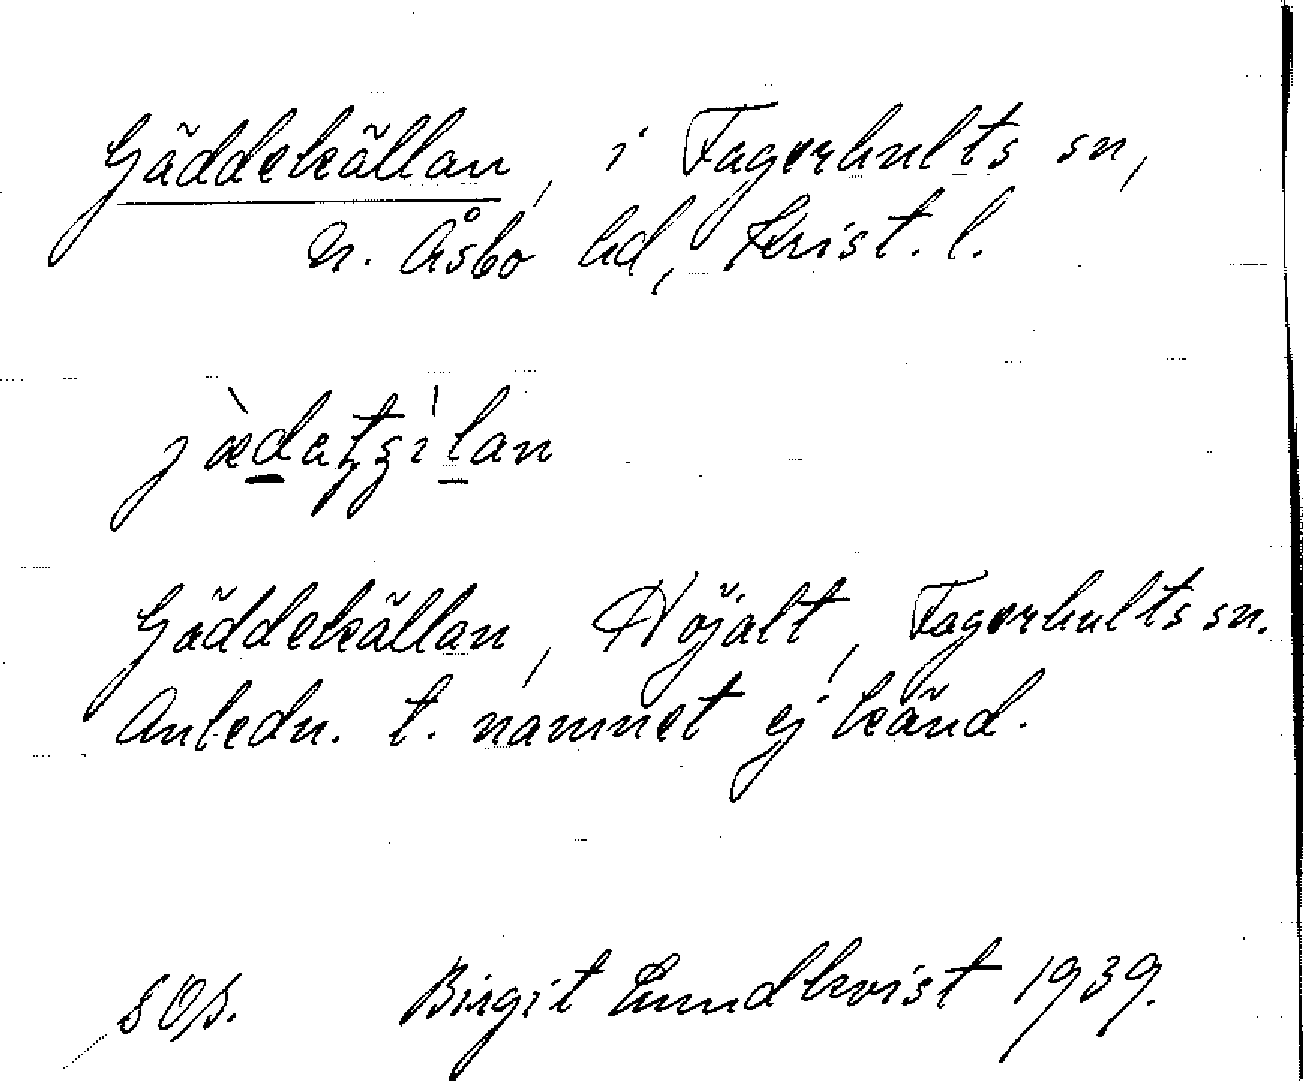 Gäddekällan, i Fagerhults sn,
N. Åsbo hd, Krist. l.
Gäddekällan, Höjalt, Fagerhults sn.
Anledn. t. namnet ej känd.
Birgit Lundkvist 1939.